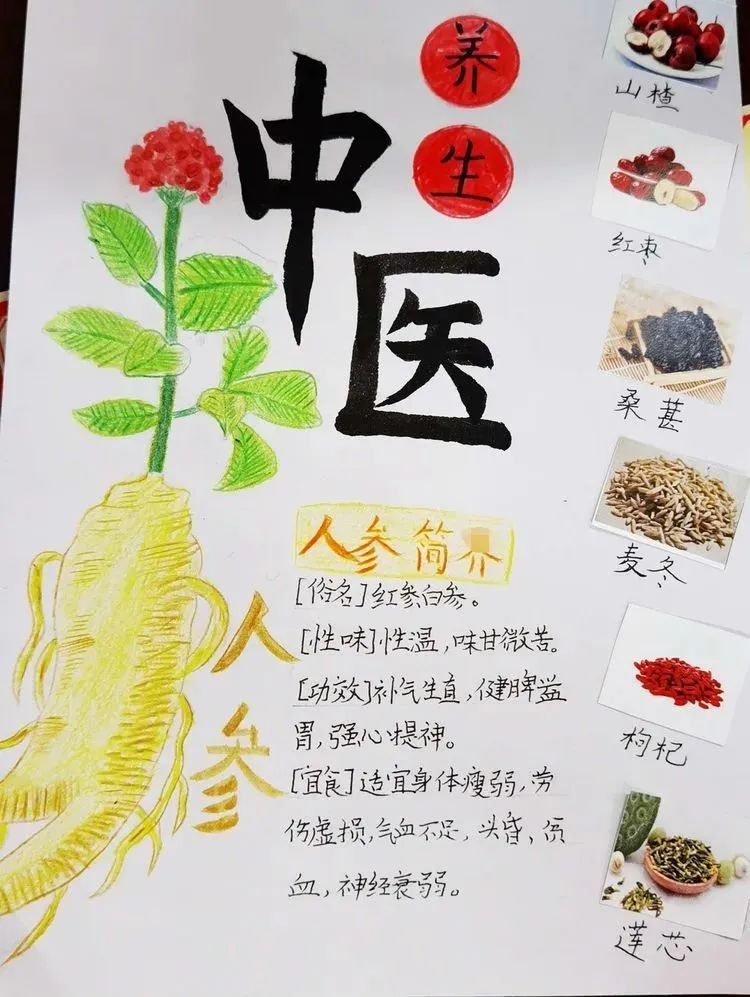 养生
中医
人参
人参简介
[俗名]红参白参。
[性味]性温，味甘微苦。
[功效]补气生直，健脾益
胃，强心提神。
[宜食]适宜身体瘦弱，劳
伤虚损，气血不足，头昏、贫
血，神经衰弱。
山楂
红枣
桑葚
麦冬
枸杞
莲芯